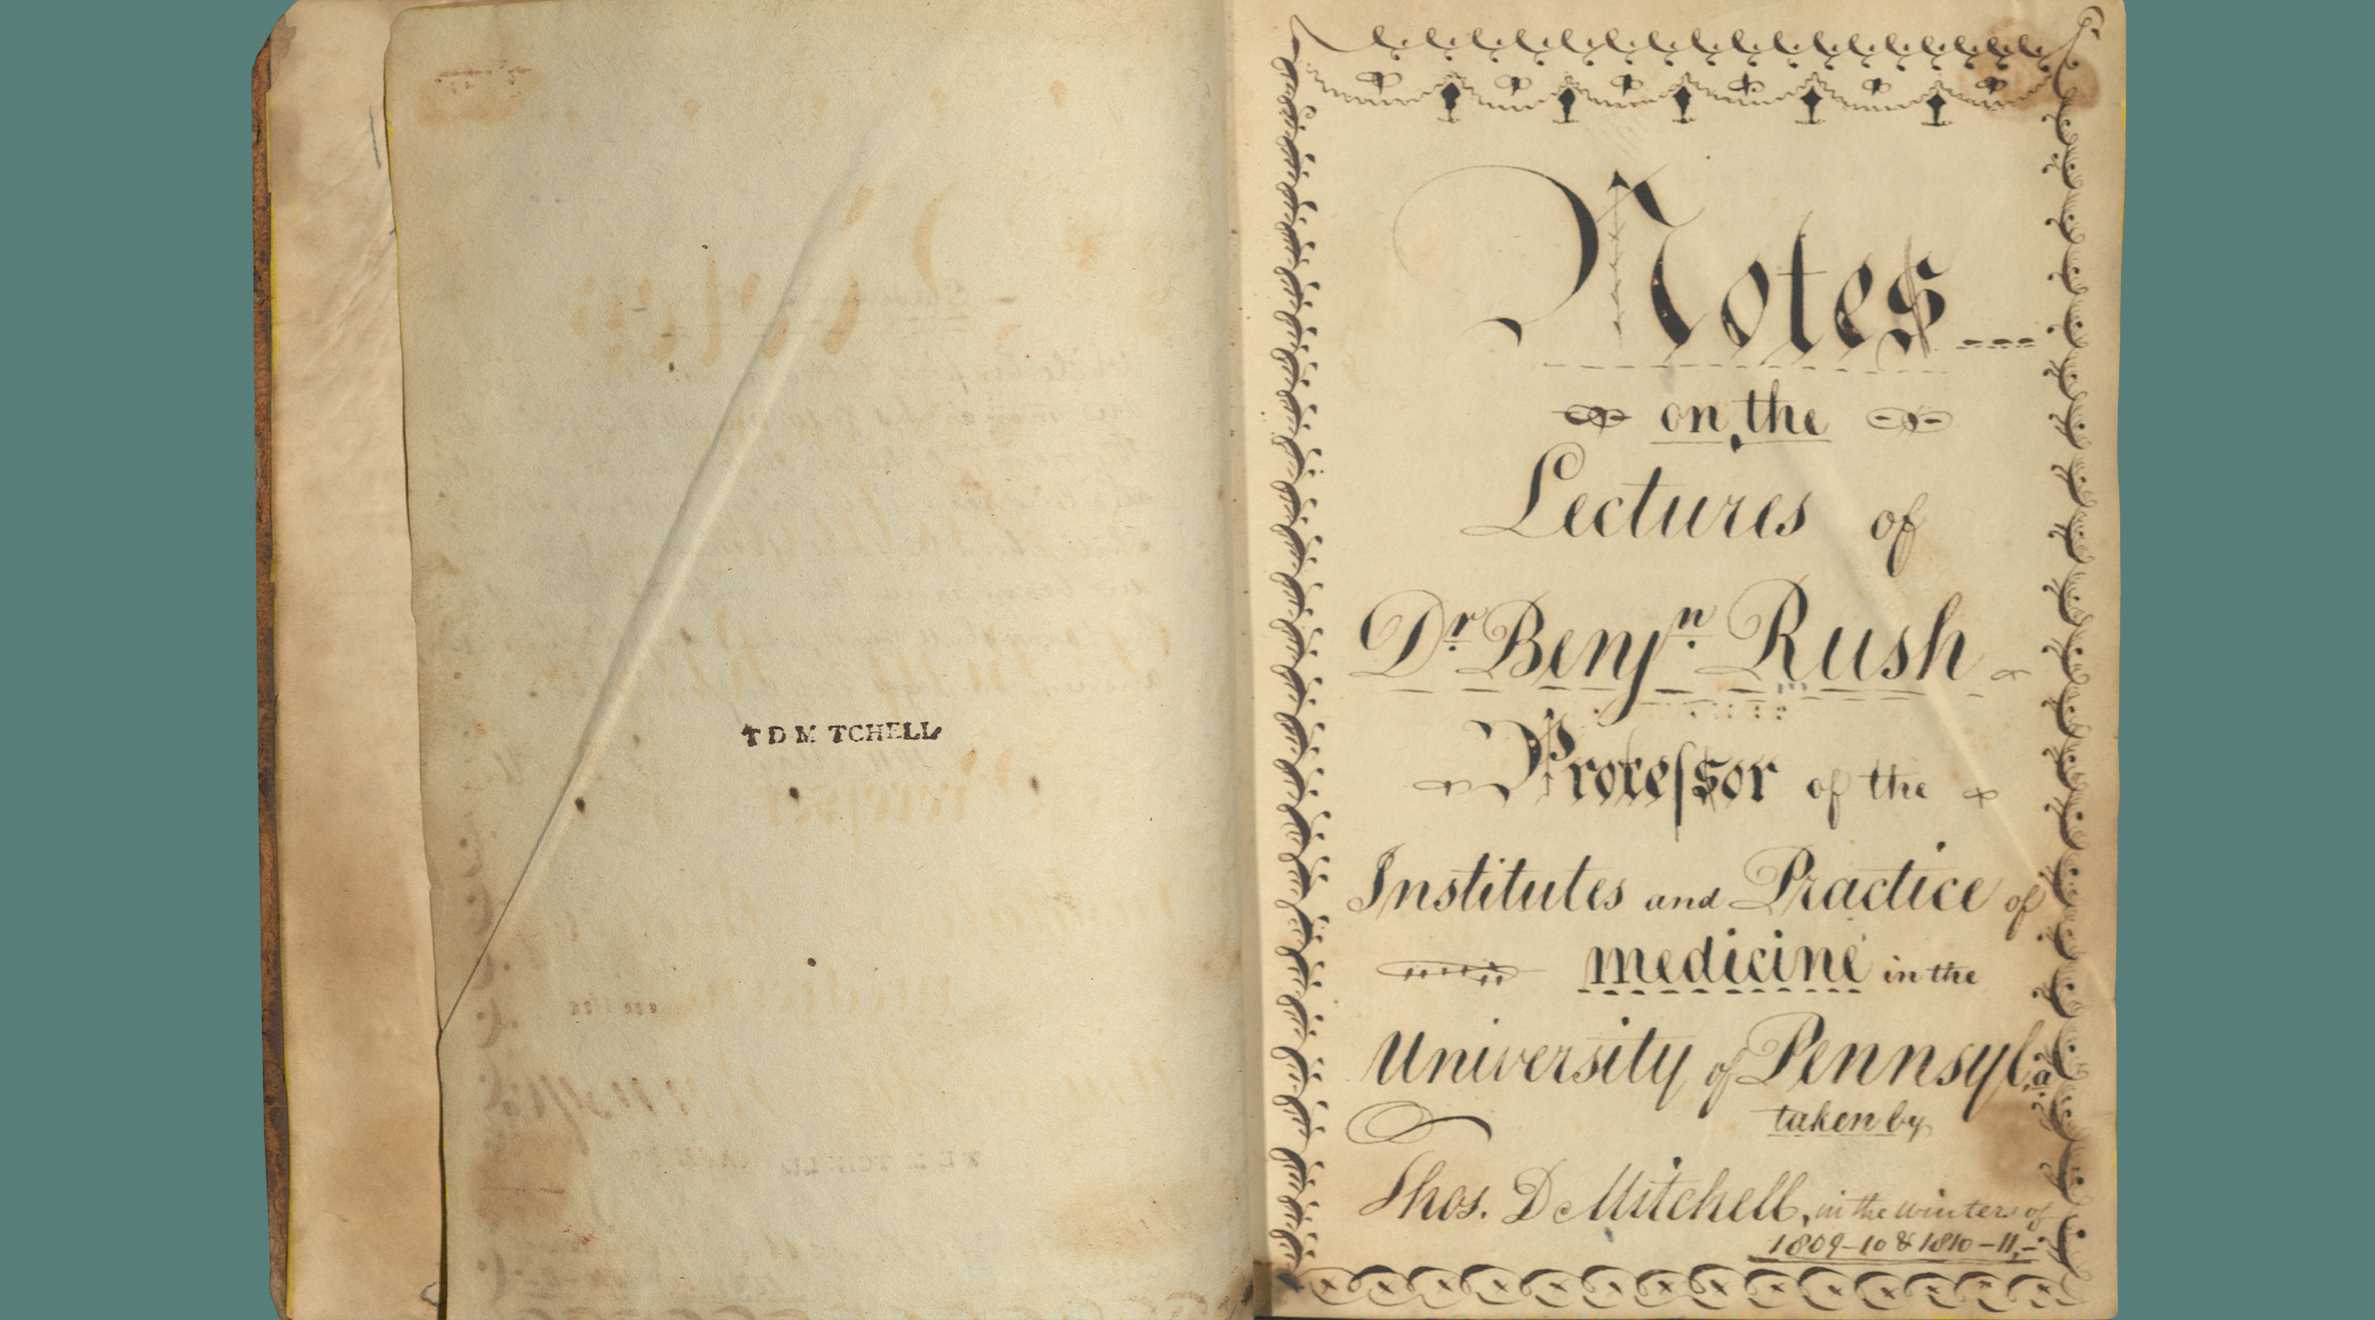 T D M TCHELL
Notes
on the
Lectures of
Dr Benjn Rush
Profeſsor of the
Institutes and Practice of
medicine in the
University of Pennsyl.a
taken by
Thos. D Mitchell, in the winters of
1809-10 & 1810-11,-